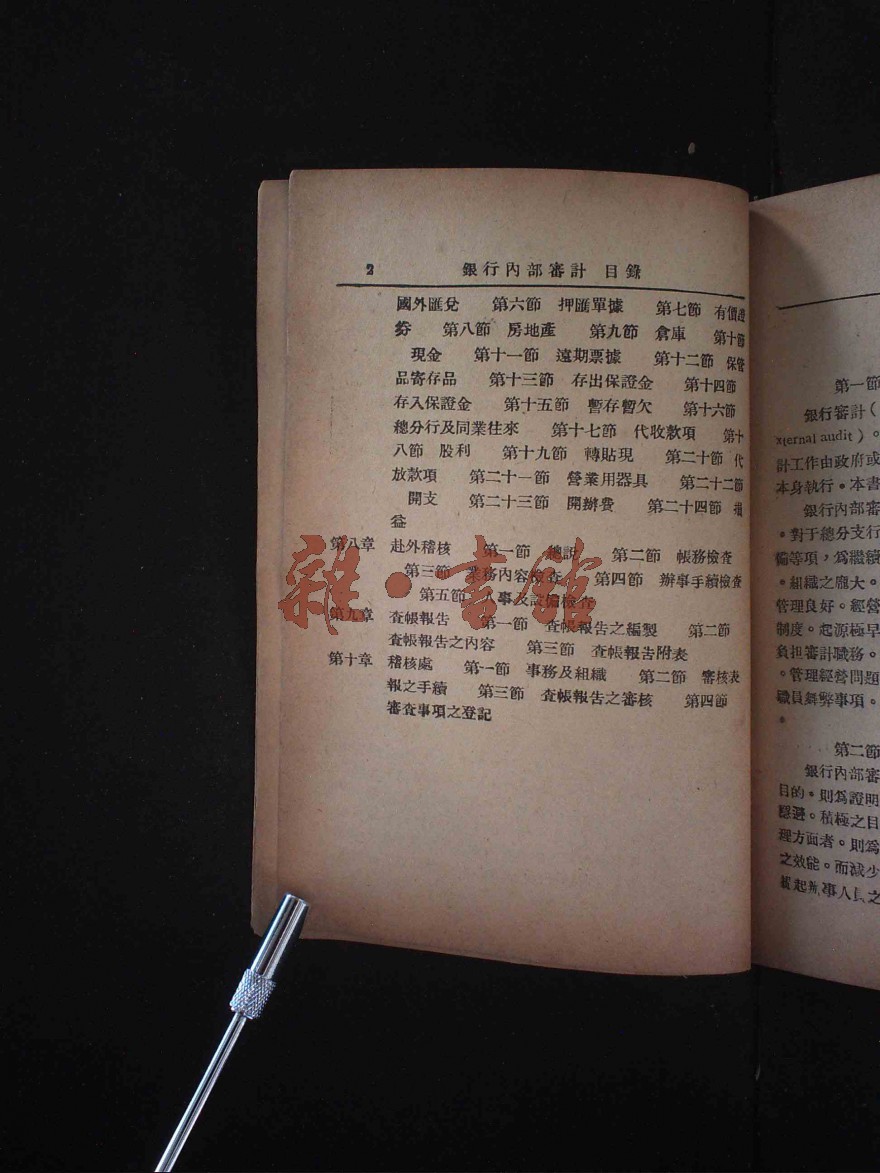 2 銀行內部審計 目錄
國外匯兌 第六節 押匯單據 第七節 有價證
券 第八節 房地產 第九節 倉庫 第十節
現金 第十一節 遠期票據 第十二節 保管
品寄存品 第十三節 存出保證金 第十四節
存入保證金 第十五節 暫存暫欠 第十六節
總分行及同業往來 第十七節 代收款項 第十
八節 股利 第十九節 轉貼現 第二十節 代
放款項 第二十一節 營業用器具 第二十二節
開支 第二十三節 開辦費 第二十四節 損
益
第八章 赴外稽核 第一節 總說 第二節 帳務檢查
第三節 業務內容檢查 第四節 辦事手續檢查
第五節 人事及設備檢查
第九章 查帳報告 第一節 查帳報告之編製 第二節
查帳報告之內容 第三節 查帳報告附表
第十章 稽核處 第一節 事務及組織 第二節 審核表
報之手續 第三節 查帳報告之審核 第四節
審查事項之登記
雜·書館
第一節
銀行審計(
xternal audit)。
計工作由政府或
本身執行。本書
銀行內部審
。對于總分支行
備等項，為繼續
。組織之龐大。
管理良好。經營
制度。起源極早
負担審計職務。
。管理經營問題
職員舞弊事項。
。
第二節
銀行內部審
目的。則為證明
隱遯。積極之目
理方面者。則為
之效能。而減少
起辦事人員之